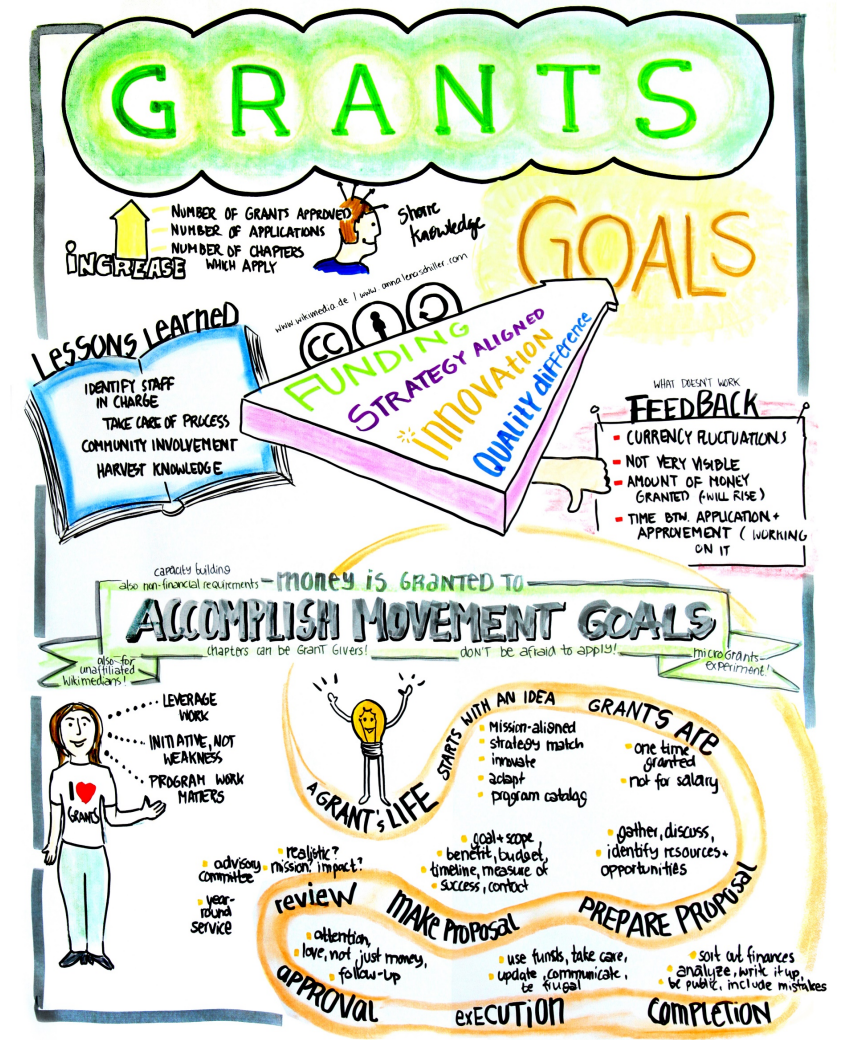 GRANTS
NUMBER OF GRANTS APPROVED
NUMBER OF APPLICATIONS
NUMBER OF CHAPTERS
WHICH APPLY
INCREASE
Share
Knowledge
GOALS
www.wikimedia.de / www.annalenaschiller.com
CC
LESSONS LEARNED
IDENTIFY STAFF
IN CHARGE
TAKE CARE OF PROCESS
COMMUNITY INVOLVEMENT
HARVEST KNOWLEDGE
FUNDING
STRATEGY ALIGNED
INNOVATION
QUALITY difference
WHAT DOESN'T WORK
FEEDBACK
CURRENCY FLUCTUATIONS
NOT VERY VISIBLE
AMOUNT OF MONEY
GRANTED (→WILL RISE)
TIME BTW. APPLICATION +
APPROVEMENT ( WORKING
ON IT
capacity building
also non-financial requirements - money is GRANTED TO
ACCOMPLISH MOVEMENT GOALS
chapters can be GranT Givers! don't be afraid to apply!
also for
unaffiliated
Wikimedians!
microGrants
experiment!
LEVERAGE
WORK
INITIATIVE, NOT
WEAKNESS
PROGRAM WORK
MATTERS
I
GRANTS
A GRANT'S LIFE
STARTS WITH AN IDEA
Mission-aligned
strategy match
innovate
adapt
program catalog
GRANTS ARE
one time
granted
not for salary
gather, discuss,
identify resources+
opportunities
PREPARE PROPOSAL
goal + scope,
benefit, budget,
timeline, measure of
success, contact
MAKE PROPOSAL
realistic?
mission? impact?
advisory
committee
year-
round
service
review
attention,
love, not just money,
follow-up
APPROVAL
use funds, take care,
update, communicate,
be frugal
exECUTION
sort out finances
analyze, write it up,
be public, include mistakes
COMPLETION